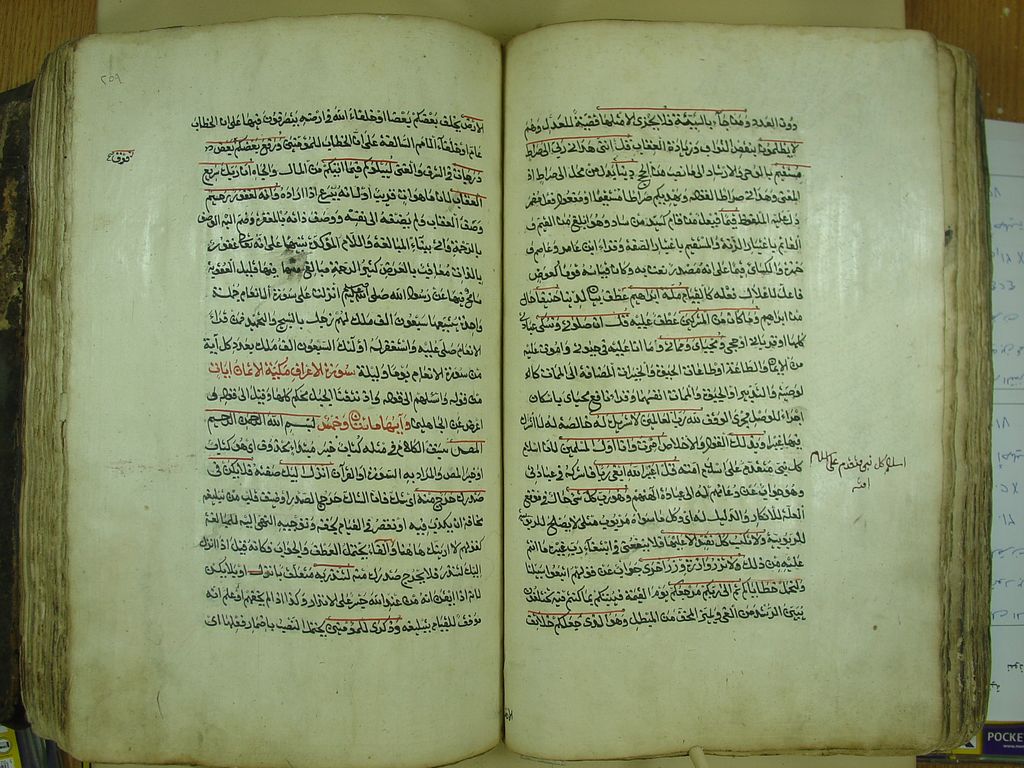 دون العدد ومن جاء بالسيئة فلا يجزى الا مثلها قضية للعدل وهم
لا يظلمون بنقص الثواب وزيادة العقاب قل انني هداني ربي الى صراط
مستقيم بالوحي والارشاد الى ما نصب من الحجج دينا بدل من محل الى صراط اذ
المعنى وهداني صراطا كقوله ويهديكم صراطا مستقيما او مفعول فعل مضمر
دل عليه الملفوظ قيما فيعل من قام كسيد من ساد وهو ابلغ من القيم
القائم باعتبار الزنة والمستقيم باعتبار الصيغة وقرا ابن عامر وعاصم و
حمزة والكسائي قيما على انه مصدر نعت به وكان قياسه قوما كعوض
فاعل لاعلال فعله كالقيام ملة ابراهيم عطف بيان لدينا حنيفا حال
من ابراهيم وما كان من المشركين عطف عليه قل ان صلوتي ونسكي عبادتي
كلها او قرباني او حجي ومحياي ومماتي وما انا عليه في حيوتي واموت عليه
من الايمان والطاعة او طاعات الحيوة والخيرات المضافة الى الممات كالـ
لوصية والتدبير او الحيوة والممات انفسهما وقرا نافع محياي باسكان
اجراء للوصل مجرى الوقف لله رب العالمين لا شريك له خالصة له لا اشرك
فيها غيرا وبذلك القول او الاخلاص امرت وانا اول المسلمين لان اسلام
كل نبي متقدم على اسلام امته قل اغير الله ابغي ربا فاشركه في عبادتي
وهو جواب عن دعائهم له الى عبادة الهتهم وهو رب كل شئ حال في موقع
العلة للانكار والدليل له اي وكل ما سواه مربوب مثلي لا يصلح للربوبية
للربوبية ولا تكسب كل نفس الا عليها فلا ينفعني في ابتغاء رب غيره ما انتم
عليه من ذلك ولا تزر وازرة وزر اخرى جواب عن قولهم اتبعوا سبيلنا
ولنحمل خطاياكم ثم الى ربكم مرجعكم يوم القيمة فينبئكم بما كنتم فيه تختلفون
يتبين الرشد من الغي وتمييز المحق من المبطل وهو الذي جعلكم خلائف
اسلام كل نبي متقدم على اسلام
امته
٢٥٩
الارض يخلف بعضكم بعضا او خلفاء الله في ارضه يتصرفون فيها على ان الخطاب
عام او خلفاء الامم السالفة على ان الخطاب للمؤمنين ورفع بعضكم فوق بعض
درجات في الشرف والغنى ليبلوكم فيما اتيكم من المال والجاه ان ربك سريع
العقاب لان ما هو آت قريب او لانه يسرع اذا اراده وانه لغفور رحيم
وصف العقاب ولم يضفه الى نفسه ووصف ذاته بالمغفرة وضم اليه الوصف
بالرحمة واتى ببناء المبالغة واللام المؤكدة تنبيها على انه تعالى غفور
بالذات معاقب بالعرض كثير الرحمة مبالغ فيها قليل العقوبة
مسامح فيها عن رسول الله صلى الله عليه وسلم انزلت علي سورة الانعام جملة
واحدة يشيعها سبعون الف ملك لهم زجل بالتسبيح والتحميد فمن قرا
الانعام صلى عليه واستغفر له اولئك السبعون الف ملك بعدد كل آية
من سورة الانعام يوما وليلة سورة الاعراف مكية الا ثمان ايات
من قوله واسئلهم الى قوله واذ نتقنا الجبل محكم كلها وقيل الا قوله و
اعرض عن الجاهلين وآيها مائتان وخمس بسم الله الرحمن الرحيم
المص سبق الكلام في مثله كتاب خبر مبتدا محذوف اي هو كتاب
او خبر المص والمراد به السورة او القرآن انزل اليك صفته فلا يكن في
صدرك حرج منه اي شك فان الشاك حرج الصدر او ضيق قلب من تبليغه
مخافة ان يكذب فيه او تقصر في القيام بحقه وتوجيه النهي اليه للمبالغة
كقولهم لا ارينك ههنا والفاء يحتمل العطف والجواب فكانه قيل اذا انزل
اليك لتنذر فلا يحرج صدرك منه لتنذر به متعلق بانزل او بلا يكن
لانه اذا ايقن انه من عند الله جسر على الانذار وكذا اذا لم يخفهم او علم انه
موفق للقيام بتبليغه وذكرى للمؤمنين يحتمل النصب باضمار فعلها اي
فوق
POCKE